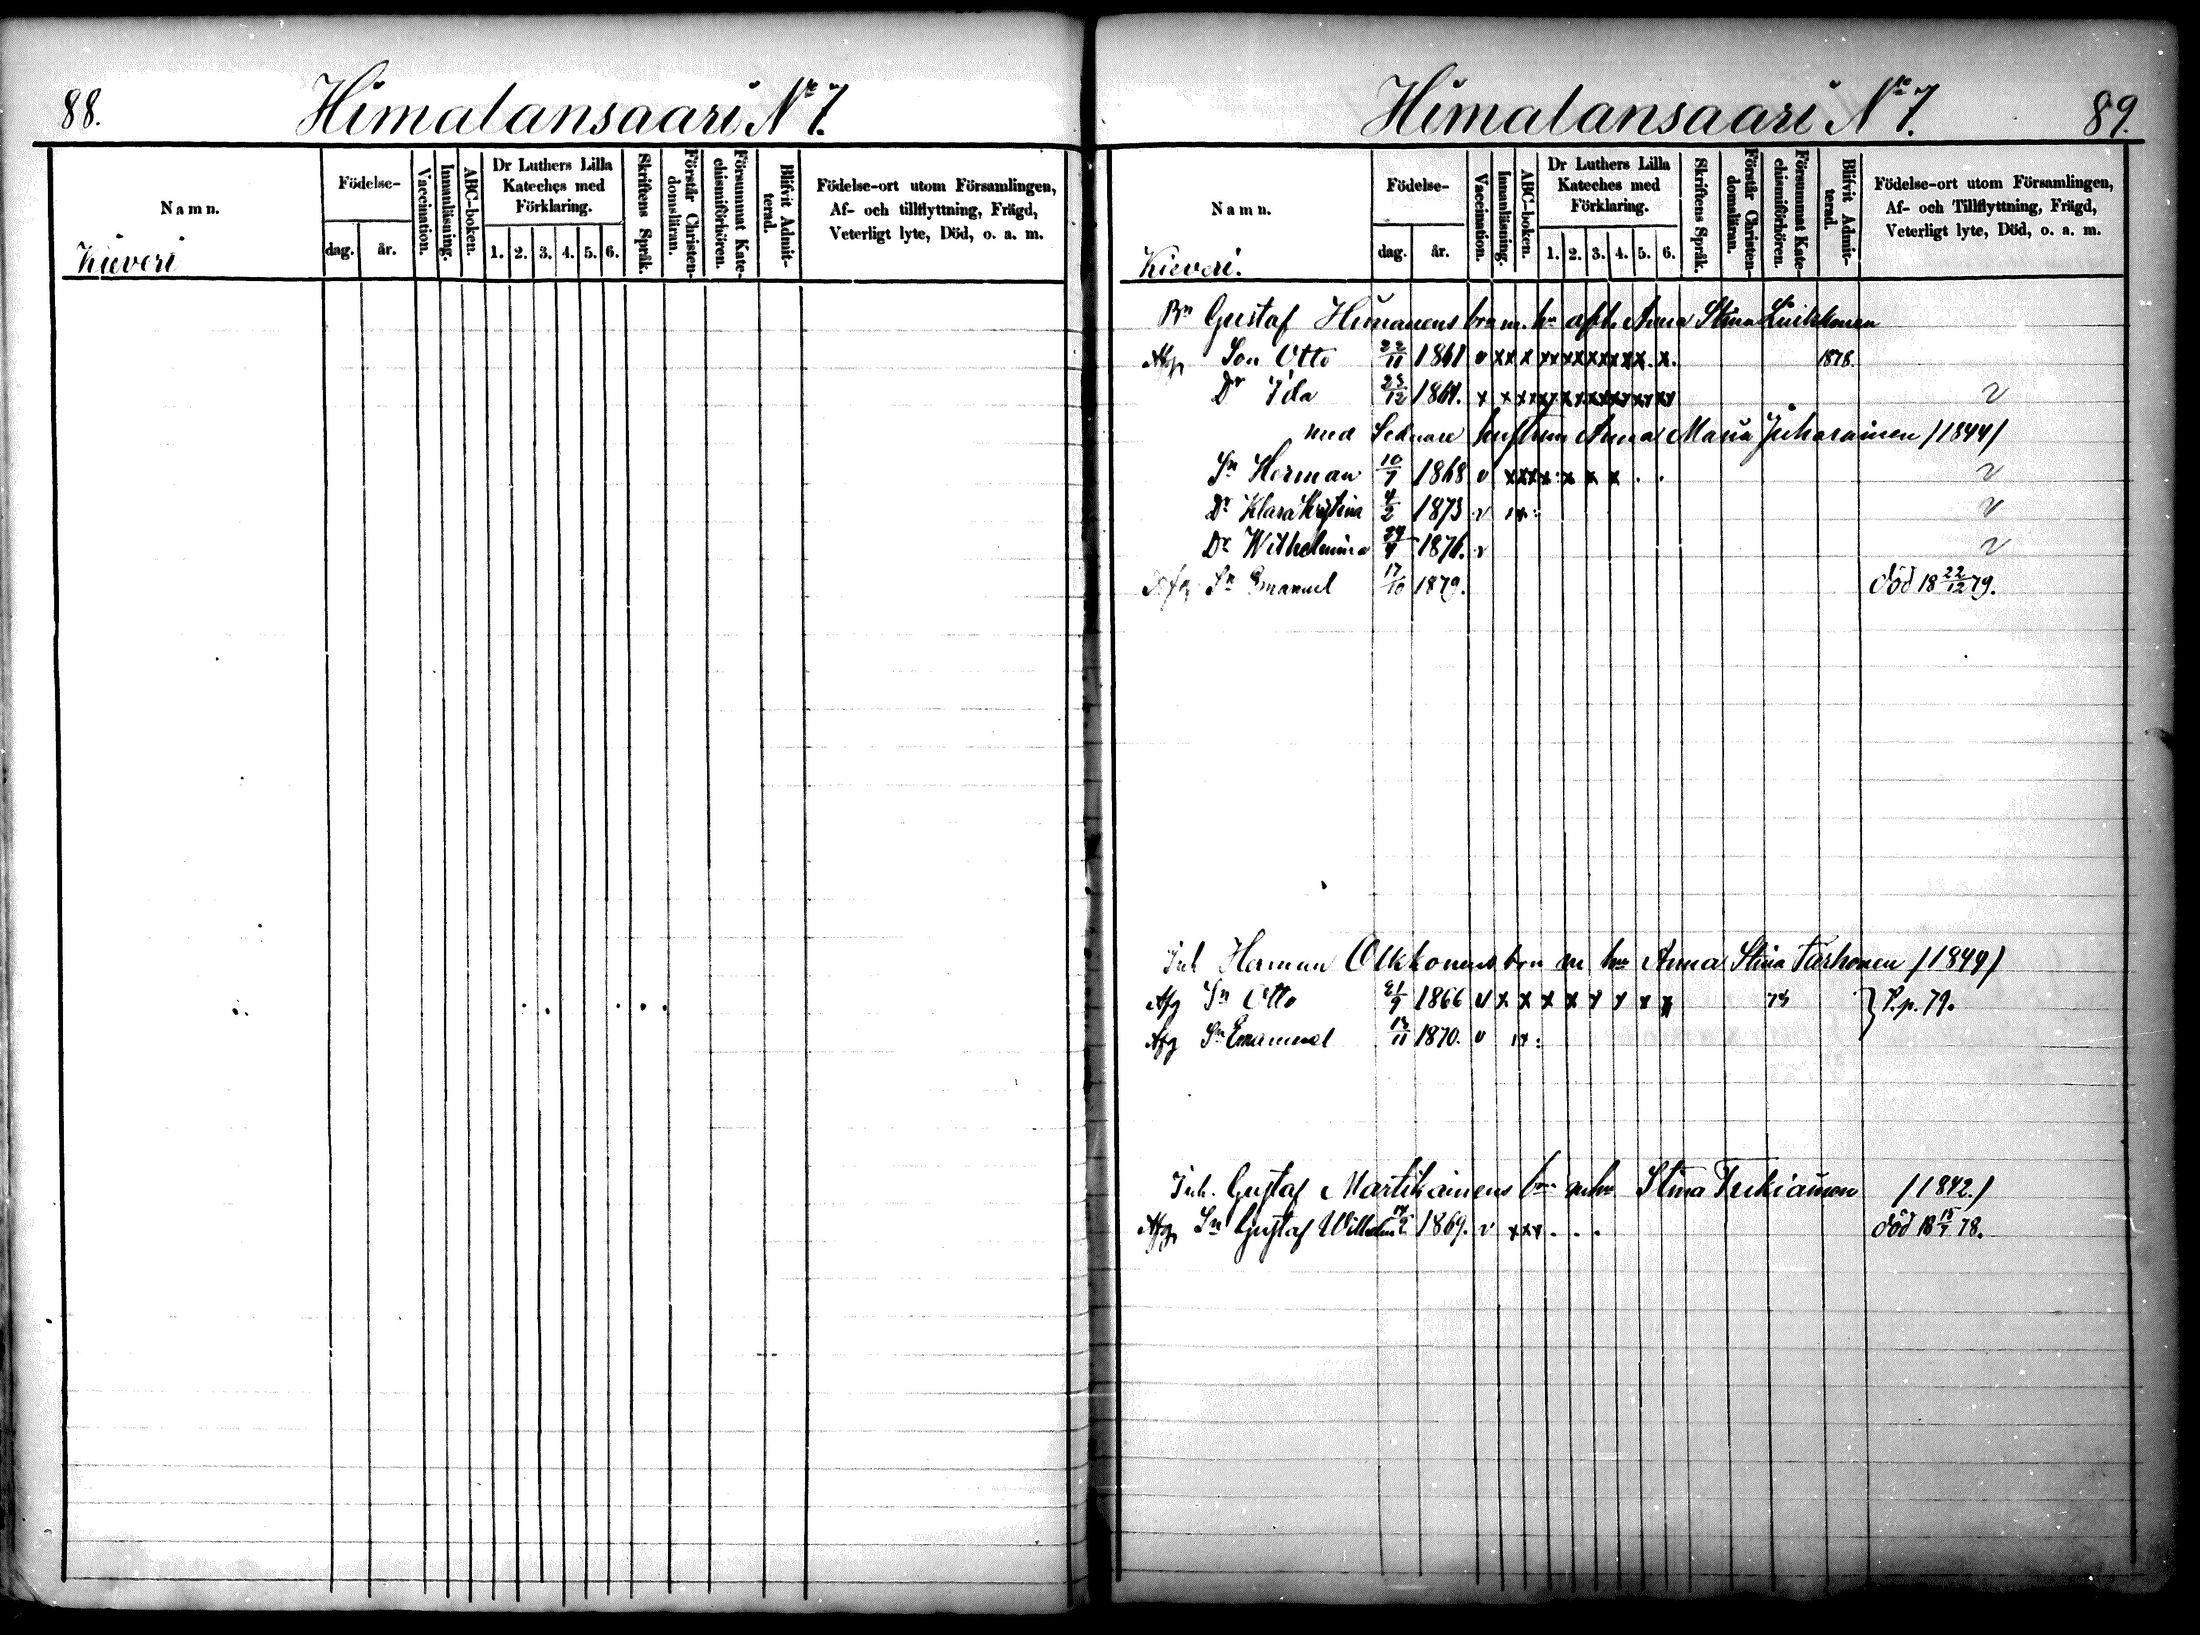 88.
Himalansaari No 7.
Namn.
Födelse-
dag.
år.
Vaccination.
Innanläsning.
ABC-boken.
Dr Luthers Lilla
Kateches med
Förklaring.
1. 2. 3. 4. 5. 6.
Skriftens Språk.
Förstår Christen-
domsläran.
Försummat Kate-
chismiförhören.
Blifvit Admit-
terad.
Födelse-ort utom Församlingen,
Af- och tillflyttning, Frägd,
Veterligt lyte, Död, o. a. m.
Kieveri
Himalansaari No 7.
89.
Namn.
Födelse-
dag.
år.
Vaccination.
Innanläsning.
ABC-boken.
Dr Luthers Lilla
Kateches med
Förklaring.
1. 2. 3. 4. 5. 6.
Skriftens Språk.
Förstår Christen-
domsläran.
Försummat Kate-
chismiförhören.
Blifvit Admit-
terad.
Födelse-ort utom Församlingen,
Af- och Tillflyttning, Frägd,
Veterligt lyte, Död, o. a. m.
Kieveri.
Bn Gustaf Himanens barn m. hu afl. Anna Stina Luikkonen
Son Otto 22/11 1861 v x x x x x x x x x x x x. x. 1878.
Dr Ida 23/12 1864. x x x x x x x x x x x x x x v
med sednare hustrun Anna Maria Juhanainen /1844/
Sn Herman 10/7 1868 v x x x x x x x . . v
Dr Klara Kristina 4/2 1873 v v
Dr Wilhelmina 24/4 1876. v v
Sn Emanuel 17/10 1879. död 18 22/12 79.
Inh Herman Olkkonens barn m hu Anna Stina Tarhonen /1849/
Afg Sn Otto 21/9 1866 v x x x x x x x x 78 } P.p. 79.
Afg Sn Emanuel 13/11 1870. v
Inh. Gustaf Martikainens barn m hu Stina Tukiainen /1842./
Afg Sn Gustaf Wilhelm 1869. v x x x . . . död 18 15/7 78.